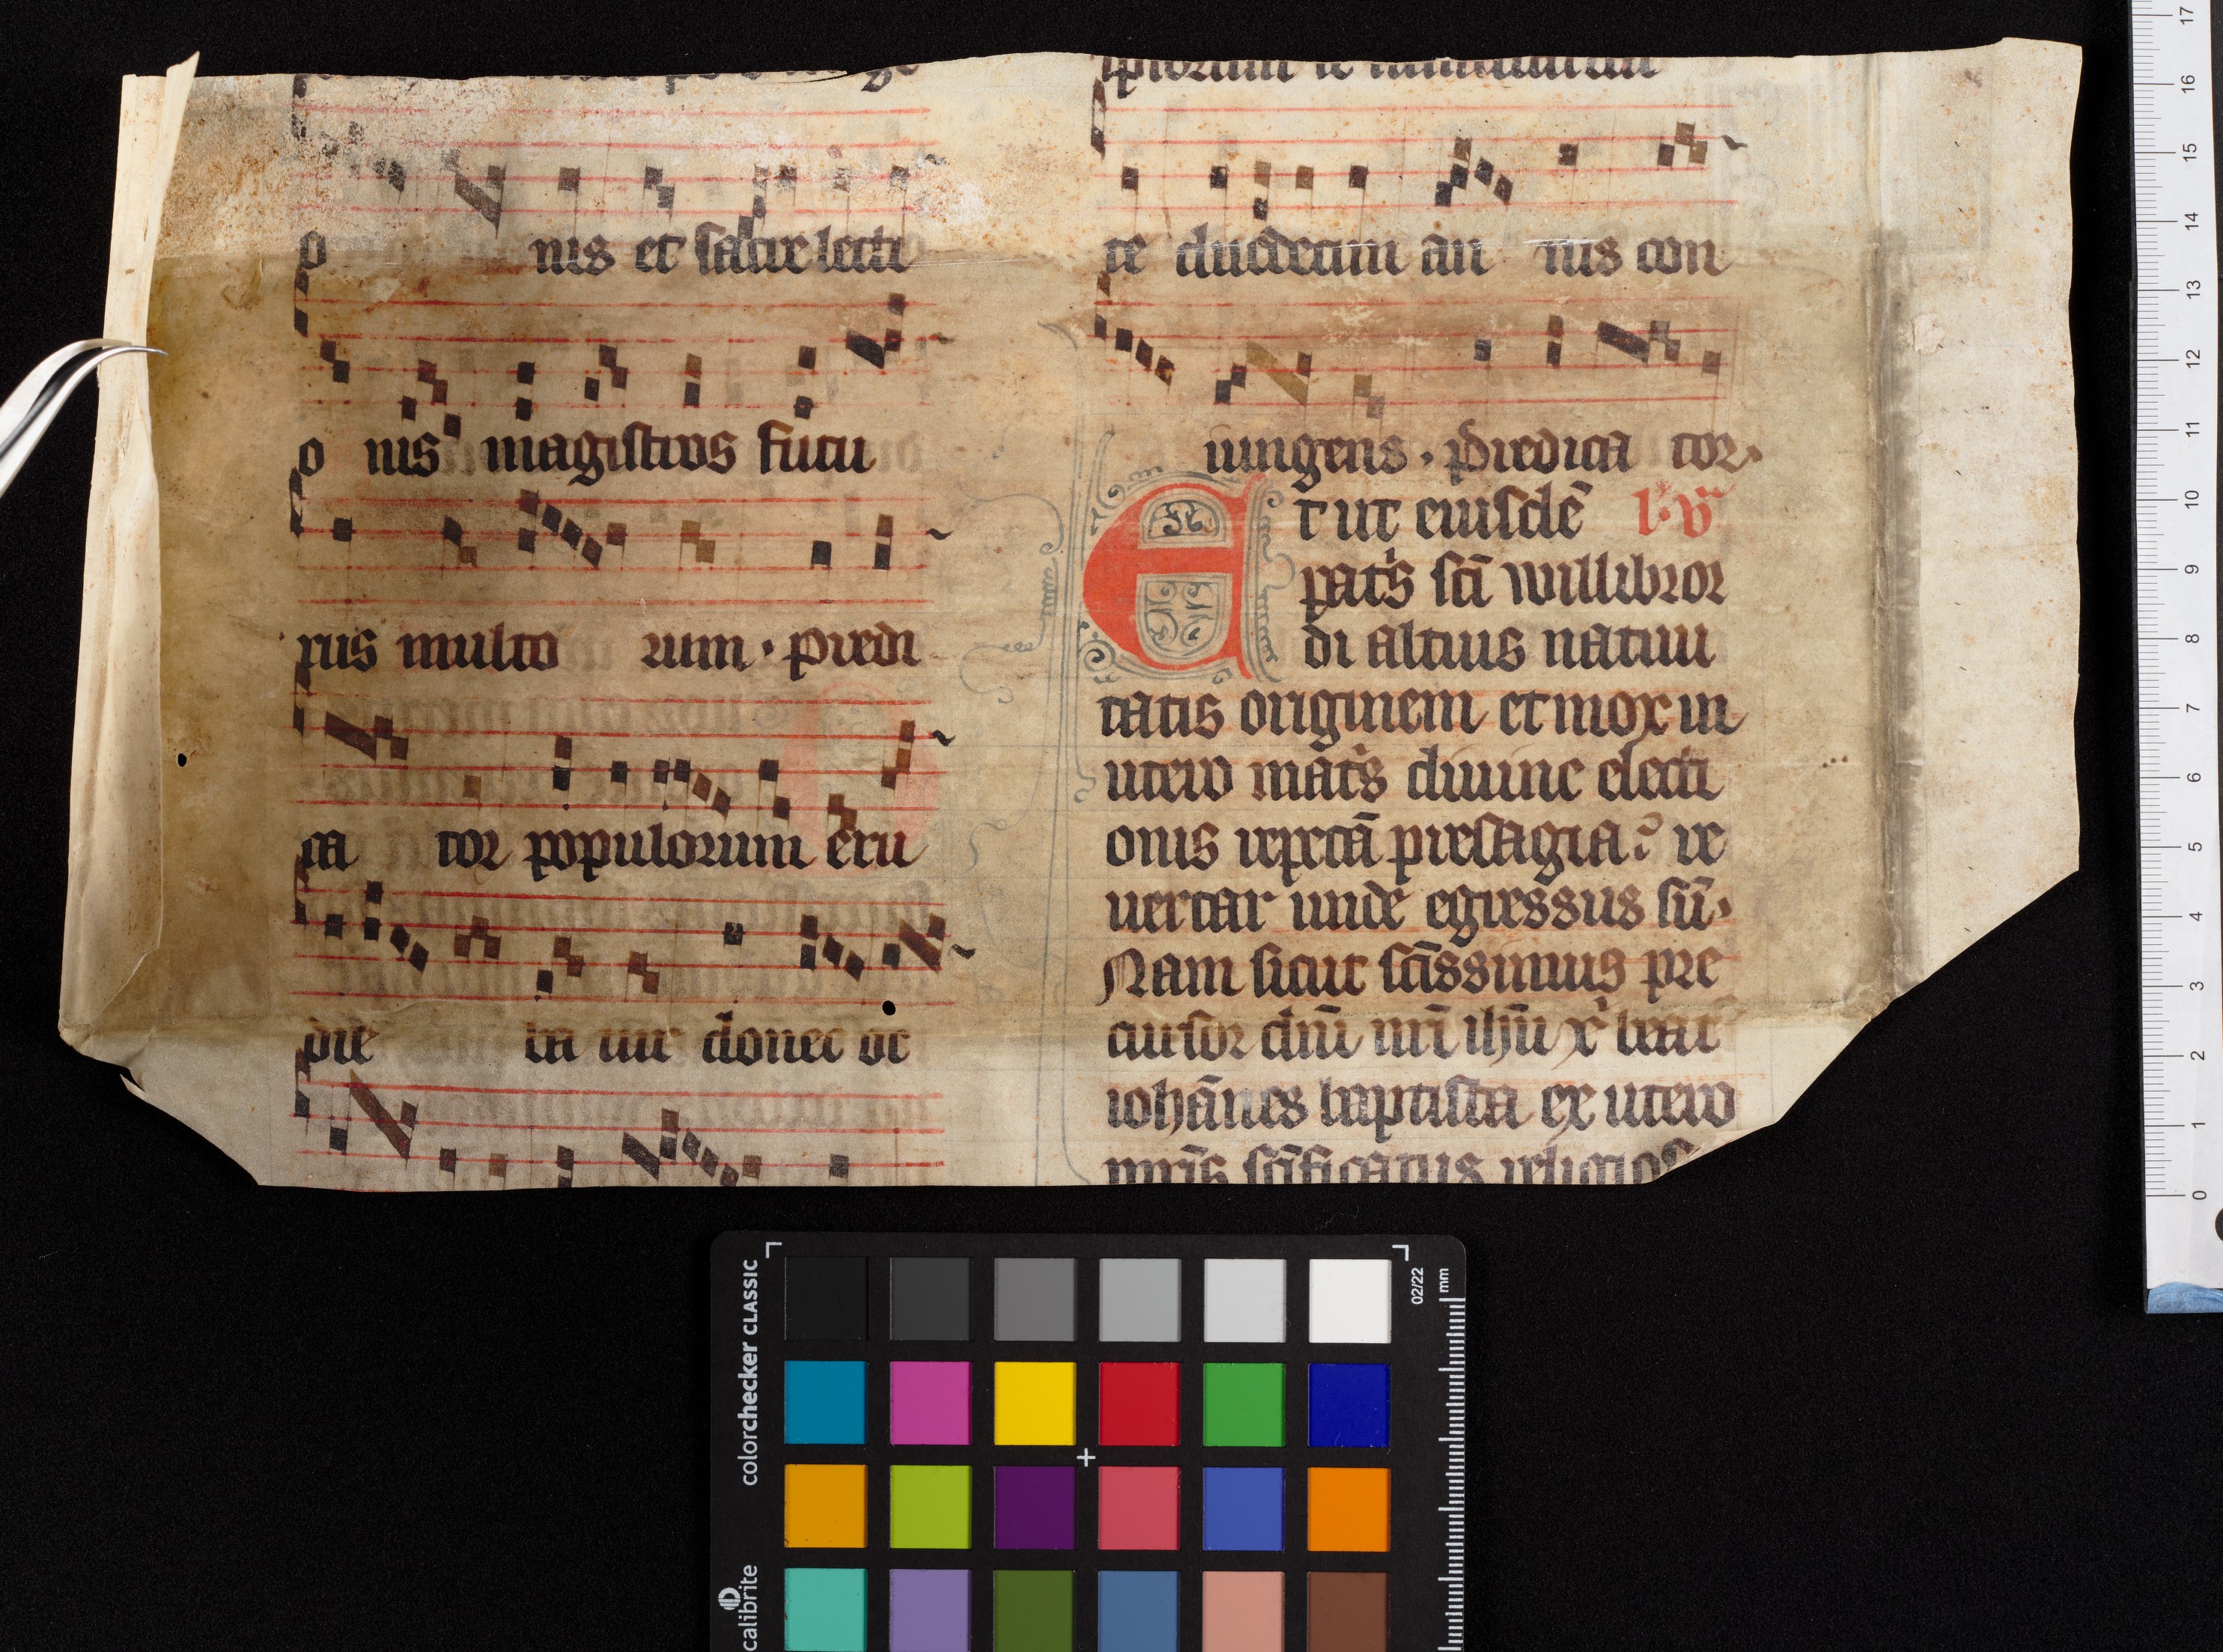 o nis et sacre lecti
o nis magistros futu
rus multo rum · predi
ca tor populorum eru
die ta nit donec oc
te duodecim an nis con
iungens · predica tor·
Et ut eiusdē l· v
pat's sci willibror
di altius natiui
tatis originem et mox in
utero mat's diuine electi
onis repetā presagia? re
uertar unde egressus sū·
Nam sicut scissimus pre
cursor dni nri ihu x beat
iohānes baptista ex utero
mris scificatus religios
17
16
15
14
13
12
11
10
9
8
7
6
5
4
3
2
1
0
colorchecker CLASSIC
calibrite
02/22
mm